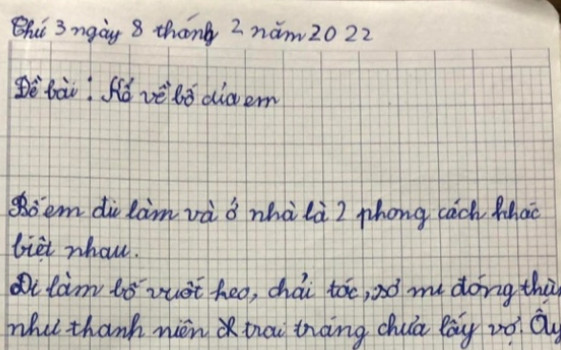 Thứ 3 ngày 8 tháng 2 năm 2022
Đề bài : Kể về bố của em
Bố em đi làm và ở nhà là 2 phong cách khác
biệt nhau.
Đi làm bố vuốt keo, chải tóc, sơ mi đóng thùng
như thanh niên trai tráng chưa lấy vợ. Ấy